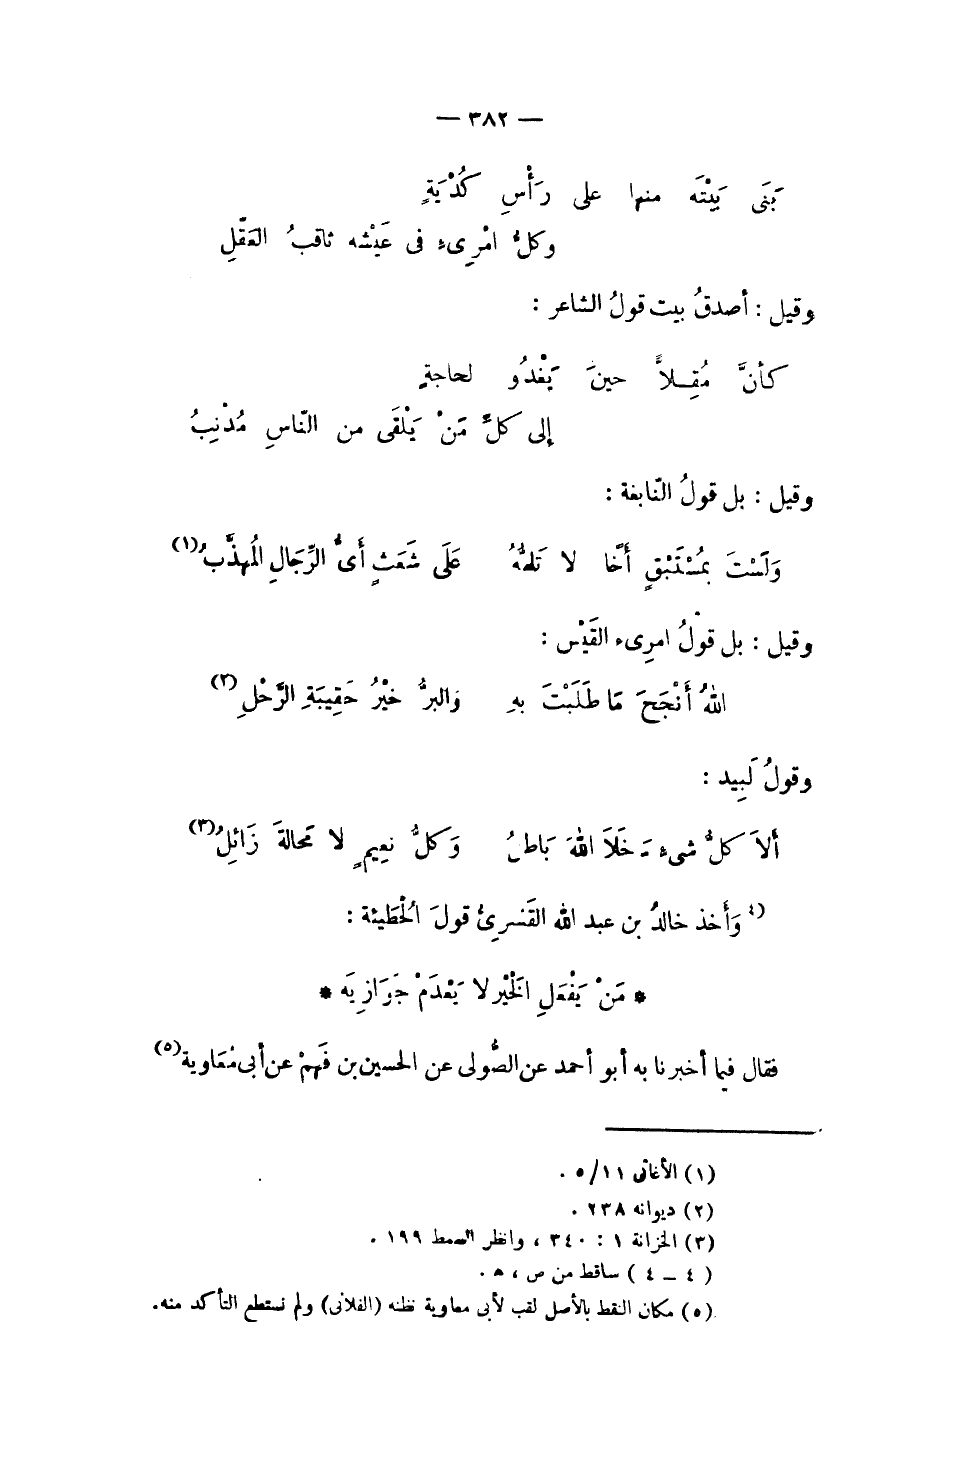 — ٣٨٢ —
بَنَى بَيْتَه منها على رَأْسِ كُدْيَةٍ
وكلُّ امْرِىء فى عَيْشه ثاقبُ العَقْلِ
وقيل : أصدقُ بيت قولُ الشاعر :
كأنَّ مُقِـلاًّ حينَ يَغْدُو لحاجةٍ
إلى كلِّ مَنْ يَلْقَى من النّاسِ مُذْنِبُ
وقيل : بل قولُ النّابغة :
وَلَسْتَ بمُسْتَبْقٍ أَخًا لا تَلُمُّهُ عَلَى شَعَثٍ أَىُّ الرِّجَالِ المُهذَّبُ(١)
وقيل : بل قوْلُ امرِىء القَيْس :
اللهُ أَنْجَحَ مَا طَلَبْتَ بهِ وَالبرُّ خَيْرُ حَقِيبَةِ الرَّحْلِ(٢)
وقولُ لَبِيد :
أَلاَ كلُّ شىء مَـ خَلَا اللهَ بَاطلُ وَكلُّ نعِيمٍ لا مَحالةَ زَائلُ(٣)
(٤ وَأَخذ خالدُ بن عبد الله القَسْرىُّ قولَ الحُطَيئة :
* مَنْ يَفْعَلِ الخَيْر لا يَعْدَمْ جَوَازِيَه *
فقال فيما أخبرنا به أبو أحمد عن الصُّولى عن الحسين بن فَهِمْ عن أبى مُعَاوية(٥)
(١) الأغانى ١١/٥ .
(٢) ديوانه ٢٣٨ .
(٣) الخزانة ١ : ٣٤٠ ، وانظر السمط ١٩٩ .
( ٤ – ٤ ) ساقط من ص ، ه .
(٥) مكان النقط بالأصل لقب لأبى معاوية نظنه (الفلانى) ولم نستطع التأكد منه.